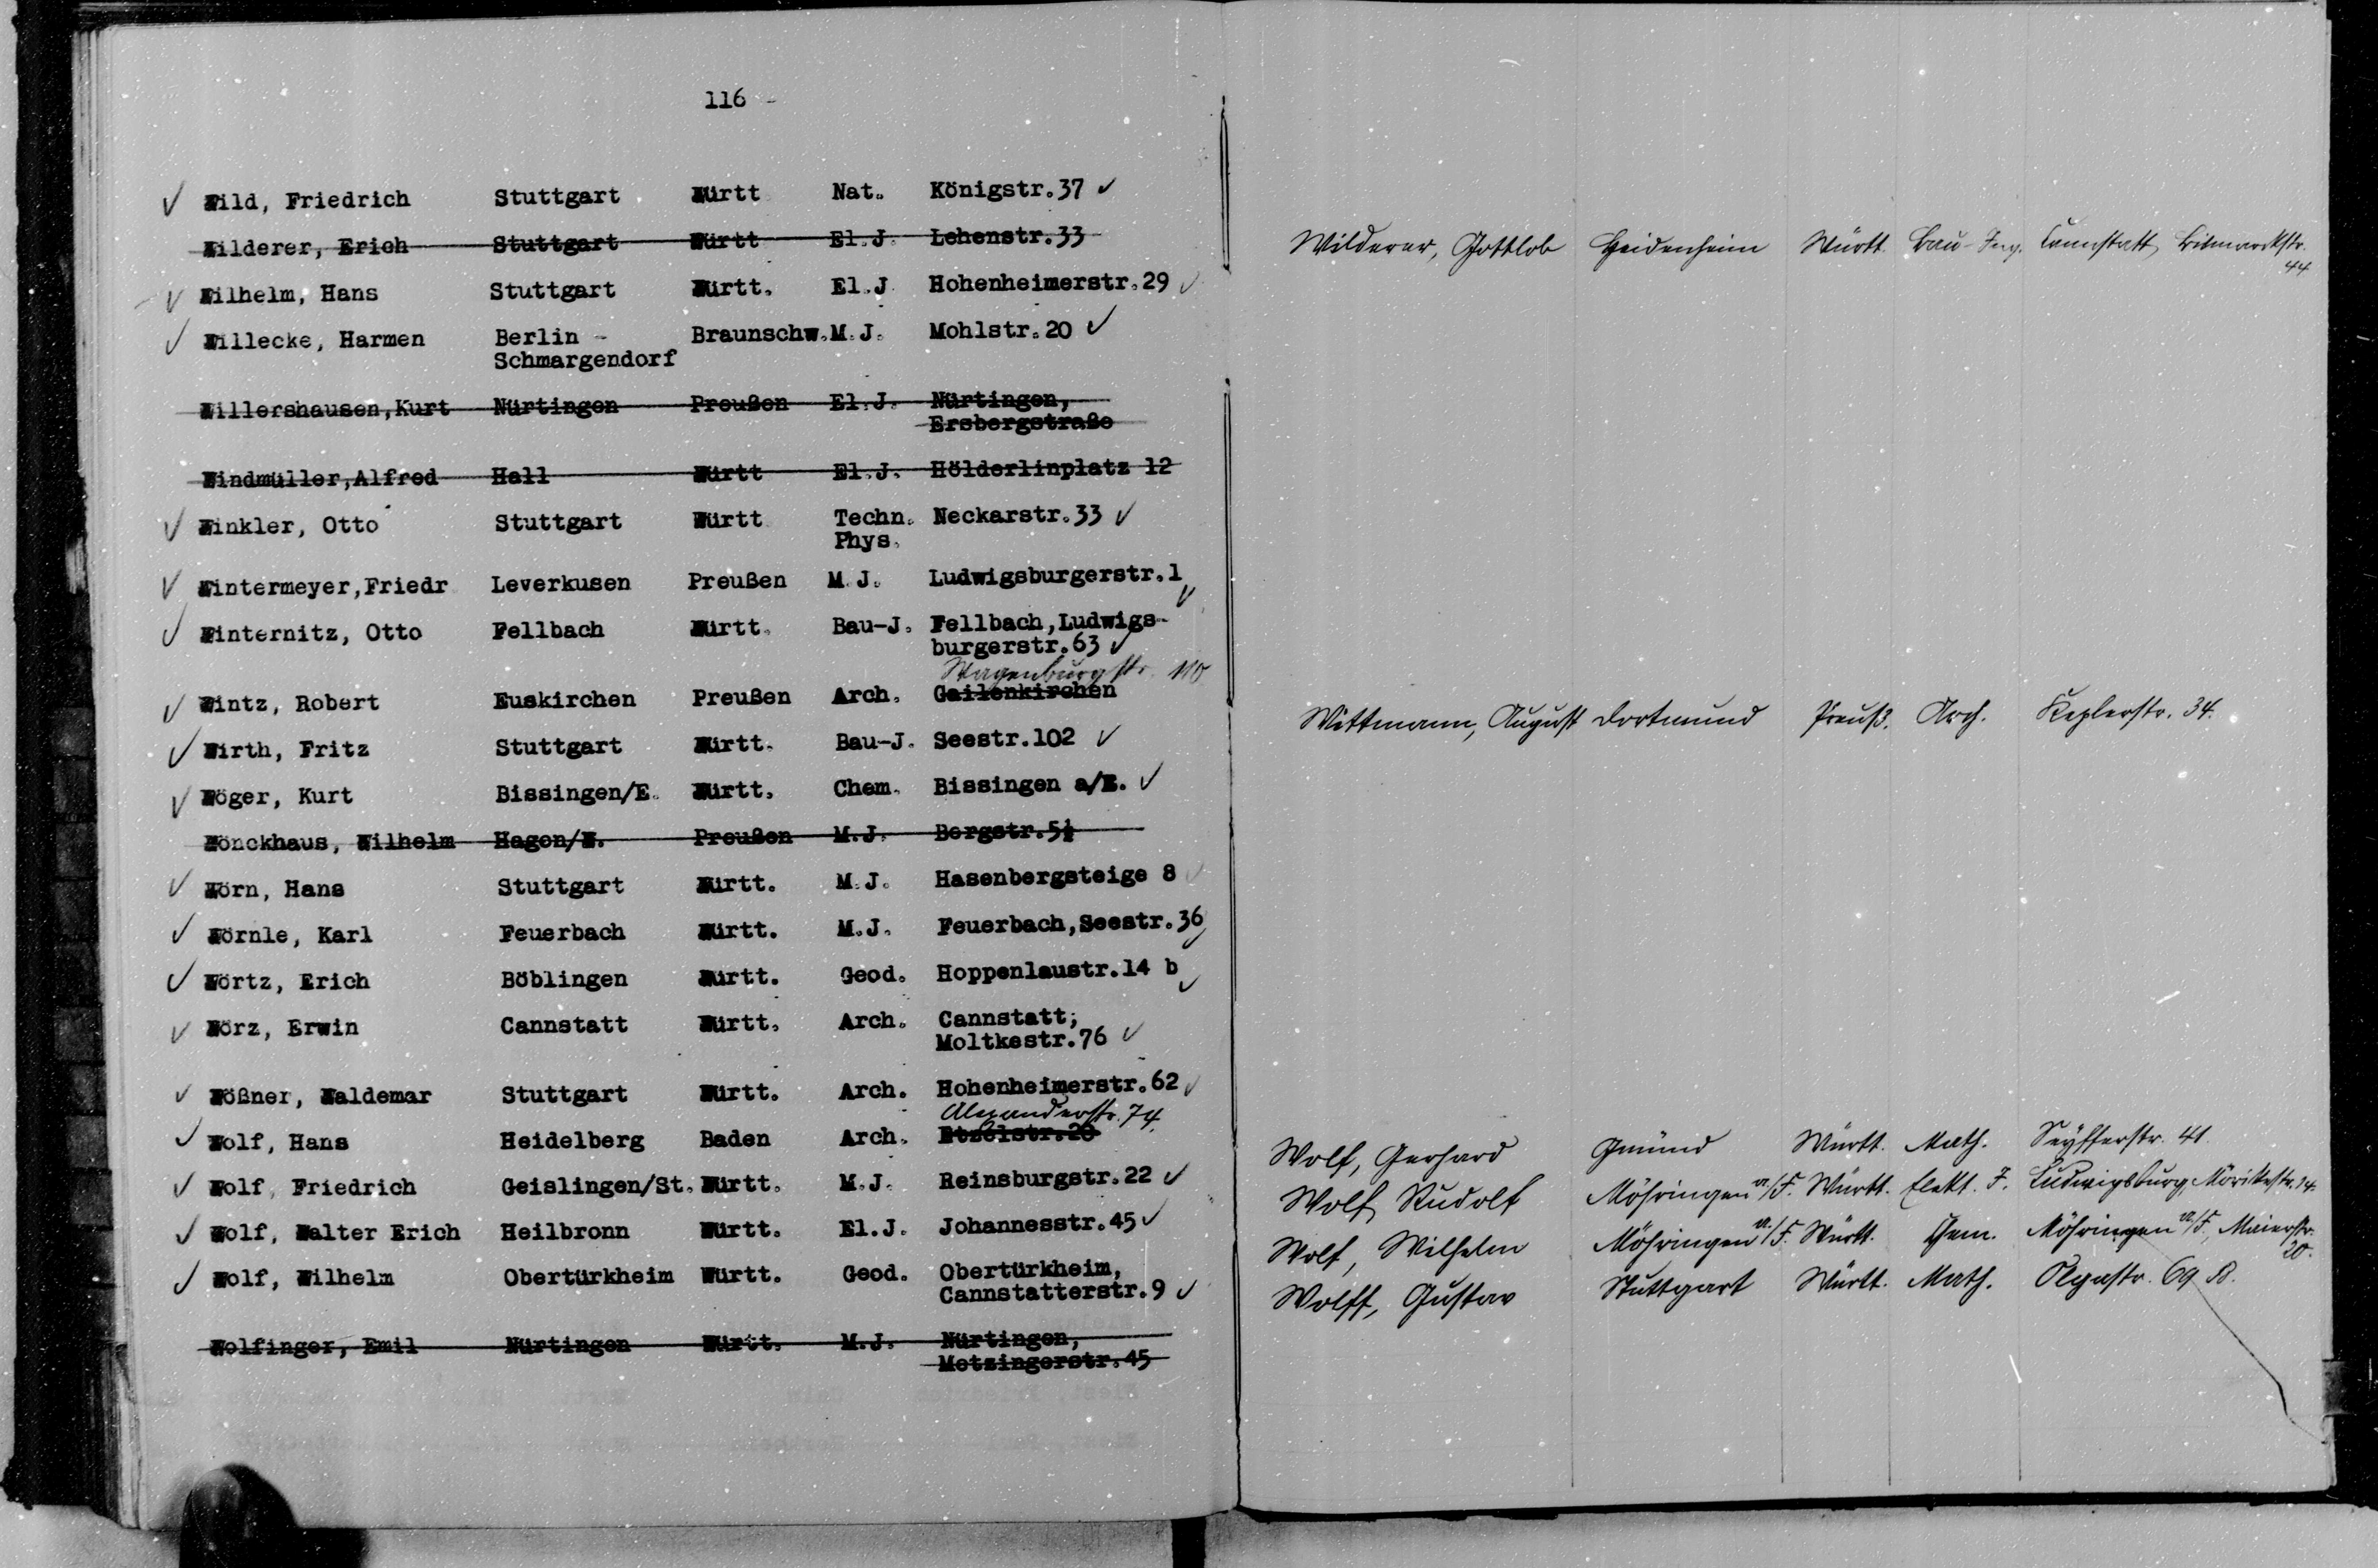 116 -
✓ Wild, Friedrich Stuttgart Württ Nat. Königstr.37 ✓
Wilderer, Erich Stuttgart Württ El.J. Lehenstr.33
✓ Wilhelm, Hans Stuttgart Württ. El.J Hohenheimerstr.29 ✓
✓ Willecke, Harmen Berlin - Braunschw. M.J. Mohlstr.20 ✓
Schmargendorf
Willershausen,Kurt Nürtingen Preußen El.J. Nürtingen,
Ersbergstraße
Windmüller,Alfred Hall Württ El.J. Hölderlinplatz 12
✓ Winkler, Otto Stuttgart Württ Techn. Neckarstr.33 ✓
Phys.
✓ Wintermeyer,Friedr Leverkusen Preußen M.J. Ludwigsburgerstr.1 ✓
✓ Winternitz, Otto Fellbach Württ. Bau-J. Fellbach,Ludwigs-
burgerstr.63 ✓
Wagenburgstr. 110
✓ Wintz, Robert Euskirchen Preußen Arch. Gailenkirchen
✓ Wirth, Fritz Stuttgart Württ. Bau-J. Seestr.102 ✓
✓ Wöger, Kurt Bissingen/E. Württ. Chem. Bissingen a/E. ✓
Wönckhaus, Wilhelm Hagen/W. Preußen M.J. Bergstr.5½
✓ Wörn, Hans Stuttgart Württ. M.J. Hasenbergsteige 8 ✓
✓ Wörnle, Karl Feuerbach Württ. M.J. Feuerbach,Seestr.36 ✓
✓ Wörtz, Erich Böblingen Württ. Geod. Hoppenlaustr.14 b ✓
✓ Wörz, Erwin Cannstatt Württ. Arch. Cannstatt;
Moltkestr.76 ✓
✓ Wößner, Waldemar Stuttgart Württ. Arch. Hohenheimerstr.62 ✓
Alexanderstr. 74.
✓ Wolf, Hans Heidelberg Baden Arch. Etzelstr.20
✓ Wolf, Friedrich Geislingen/St. Württ. M.J. Reinsburgstr.22 ✓
✓ Wolf, Walter Erich Heilbronn Württ. El.J. Johannesstr.45 ✓
✓ Wolf, Wilhelm Obertürkheim Württ. Geod. Obertürkheim,
Cannstatterstr.9 ✓
Wolfinger, Emil Nürtingen Württ. M.J. Nürtingen,
Metzingerstr.45
Wilderer, Gottlob Heidenheim Württ. Bau-Ing. Cannstatt, Bismarckstr.
44
Wittmann, August Dortmund Preuß. Arch. Keplerstr. 34.
Wolf, Gerhard Gmünd Württ. Math. Seyfferstr. 41.
Wolf, Rudolf Möhringen a/F. Württ. Elekt. J. Ludwigsburg, Mörikestr. 14.
Wolf, Wilhelm Möhringen a/F. Württ. Chem. Möhringen a/F., Maierstr.
20.
Wolff, Gustav Stuttgart Württ. Math. Olgastr. 69 B.